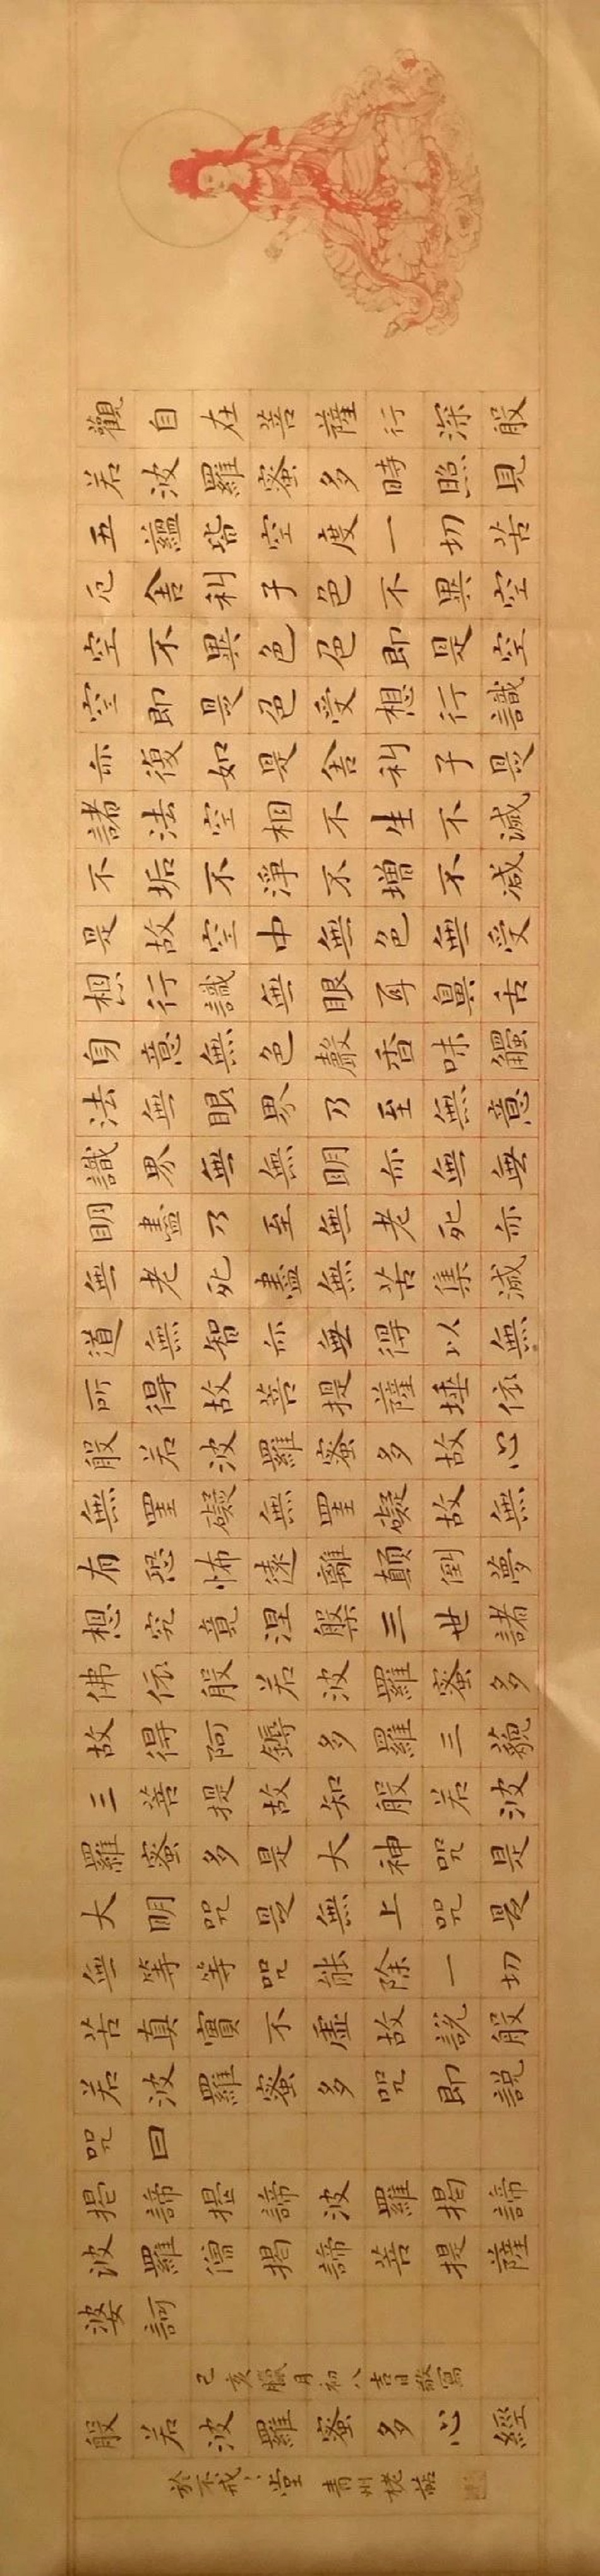 觀自在菩薩行深般
若波羅蜜多時照見
五蘊皆空度一切苦
厄舍利子色不異空
空不異色色即是空
空即是色受想行識
亦復如是舍利子是
諸法空相不生不滅
不垢不淨不增不減
是故空中無色無受
想行識無眼耳鼻舌
身意無色聲香味觸
法無眼界乃至無意
識界無無明亦無無
明盡乃至無老死亦
無老死盡無苦集滅
道無智亦無得以無
所得故菩提薩埵依
般若波羅蜜多故心
無罣礙無罣礙故無
有恐怖遠離顛倒夢
想究竟涅槃三世諸
佛依般若波羅蜜多
故得阿鎒多羅三藐
三菩提故知般若波
羅蜜多是大神咒是
大明咒是無上咒是
無等等咒能除一切
苦真實不虛故說般
若波羅蜜多咒即說
咒曰
揭諦揭諦波羅揭諦
波羅僧揭諦菩提薩
婆訶
己亥臘月初八吉日敬寫
般若波羅蜜多心經
於不戒堂 青州